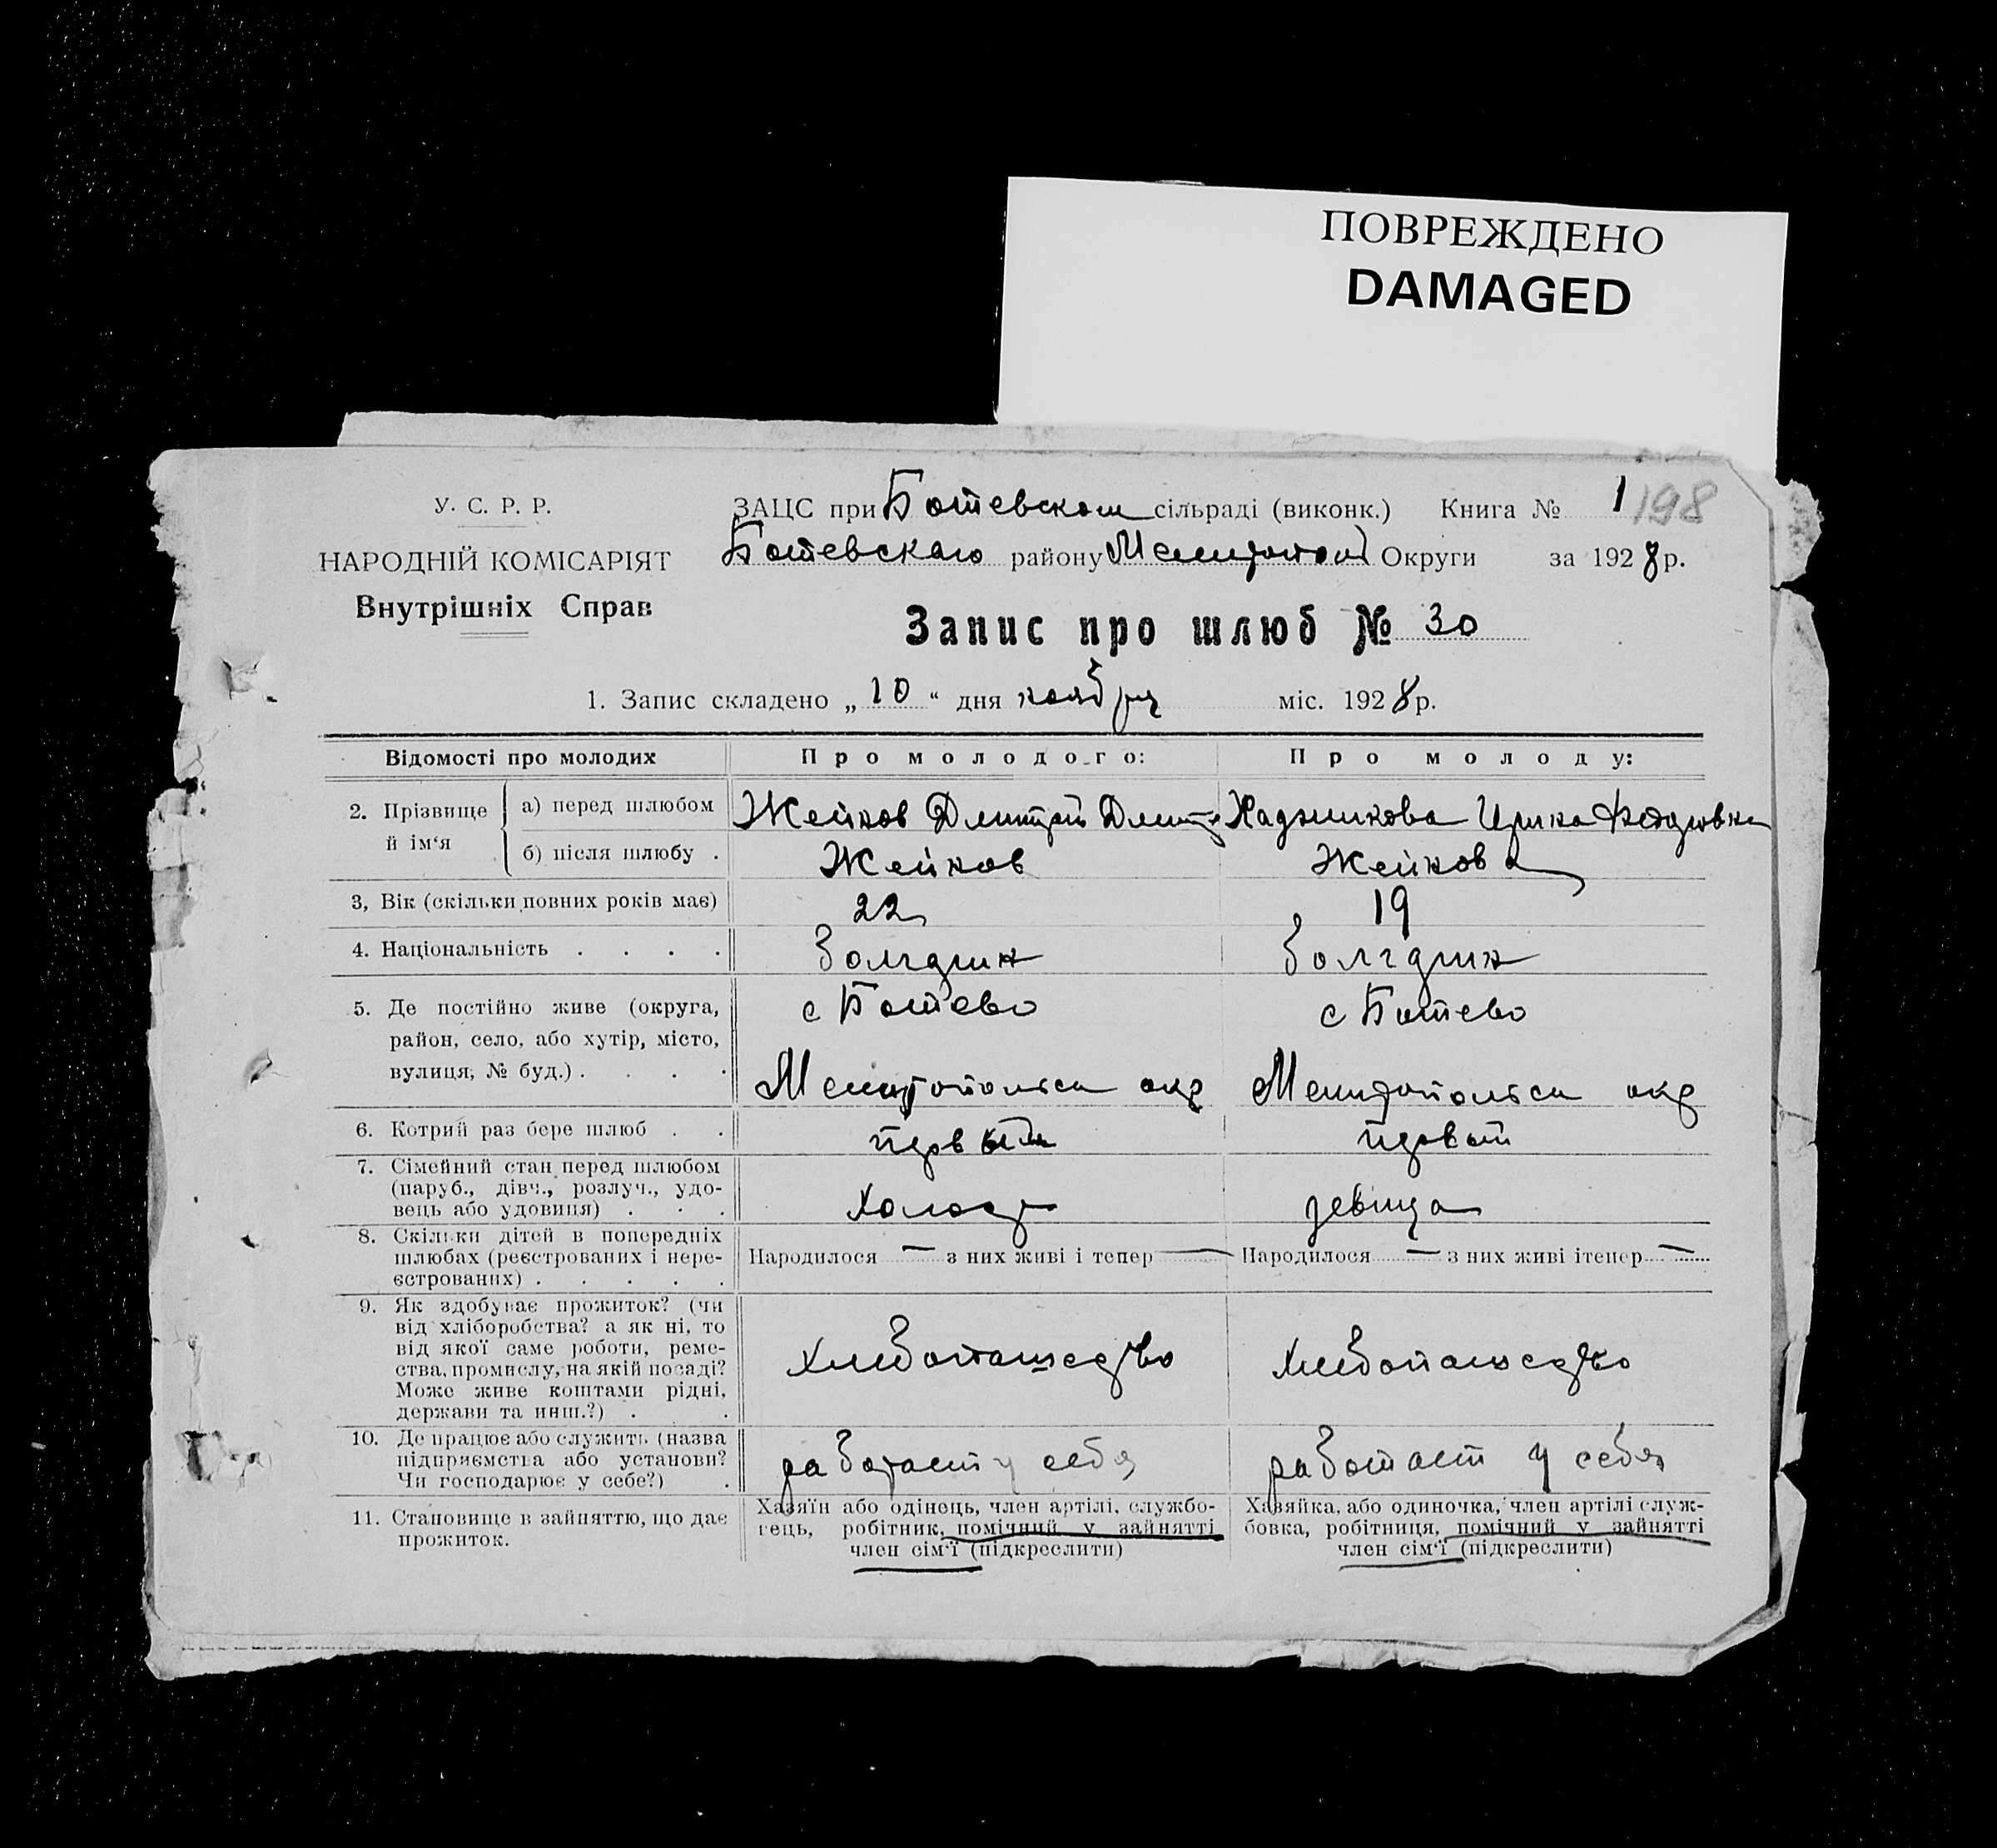 ПОВРЕЖДЕНО
DAMAGED
У. С. Р. Р.
НАРОДНІЙ КОМІСАРІЯТ
Внутрішніх Справ
ЗАЦС при Ботевском сільраді (виконк.) Книга № 1 198
Ботевскаго району Мелитопол Округи за 1928 р.
Запис про шлюб № 30
1. Запис складено „10“ дня ноября міс. 1928 р.
Відомості про молодих Про молодого: Про молоду:
2. Прізвище й ім‘я
а) перед шлюбом Жейков Дмитрий Дмит Хаджикова Ирика
б) після шлюбу . Жейков Жейкова
3, Вік (скільки повних років має) 22 19
4. Національність . . . . болгарин болгарин
5. Де постійно живе (округа, с Ботево с Ботево
район, село, або хутір, місто,
вулиця, № буд.) . . . . Мелитопольск окр Мелитопольск окр
6. Котрий раз бере шлюб . . первый первый
7. Сімейний стан перед шлюбом
(паруб., дівч., розлуч., удо-
вець або удовиця) . . . холост девица
8. Скільки дітей в попередніх
шлюбах (реєстрованих і нере-
єстрованих) . . . . . Народилося — з них живі і тепер — Народилося — з них живі ітепер —
9. Як здобуває прожиток? (чи
від хліборобства? а як ні, то
від якої саме роботи, реме-
ства, промислу, на якій посаді?
Може живе коштами рідні,
держави та инш.?) . . хлебопашество хлебопашество
10. Де працює або служить (назва
підприємства або установи?
Чи господарює у себе?) . работает у себя работает у себя
11. Становище в зайняттю, що дає
прожиток.
Хазяїн або одінець, член артілі, службо-
вець, робітник, помічний у зайнятті
член сім‘ї (підкреслити)
Хазяйка, або одиночка, член артілі служ-
бовка, робітниця, помічний у зайнятті
член сім‘ї (підкреслити)